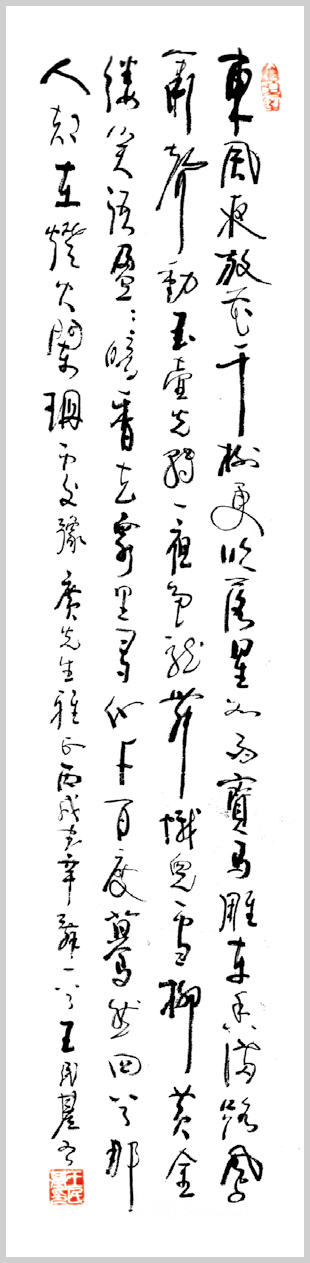 東風夜放花千樹更吹落星如雨寶馬雕車香滿路鳳
簫聲動玉壺光轉一夜魚龍舞蛾兒雪柳黃金
縷笑語盈盈暗香去眾里尋他千百度驀然回首那
人卻在燈火闌珊處 廣先生雅正丙戌辛詞一首王民書